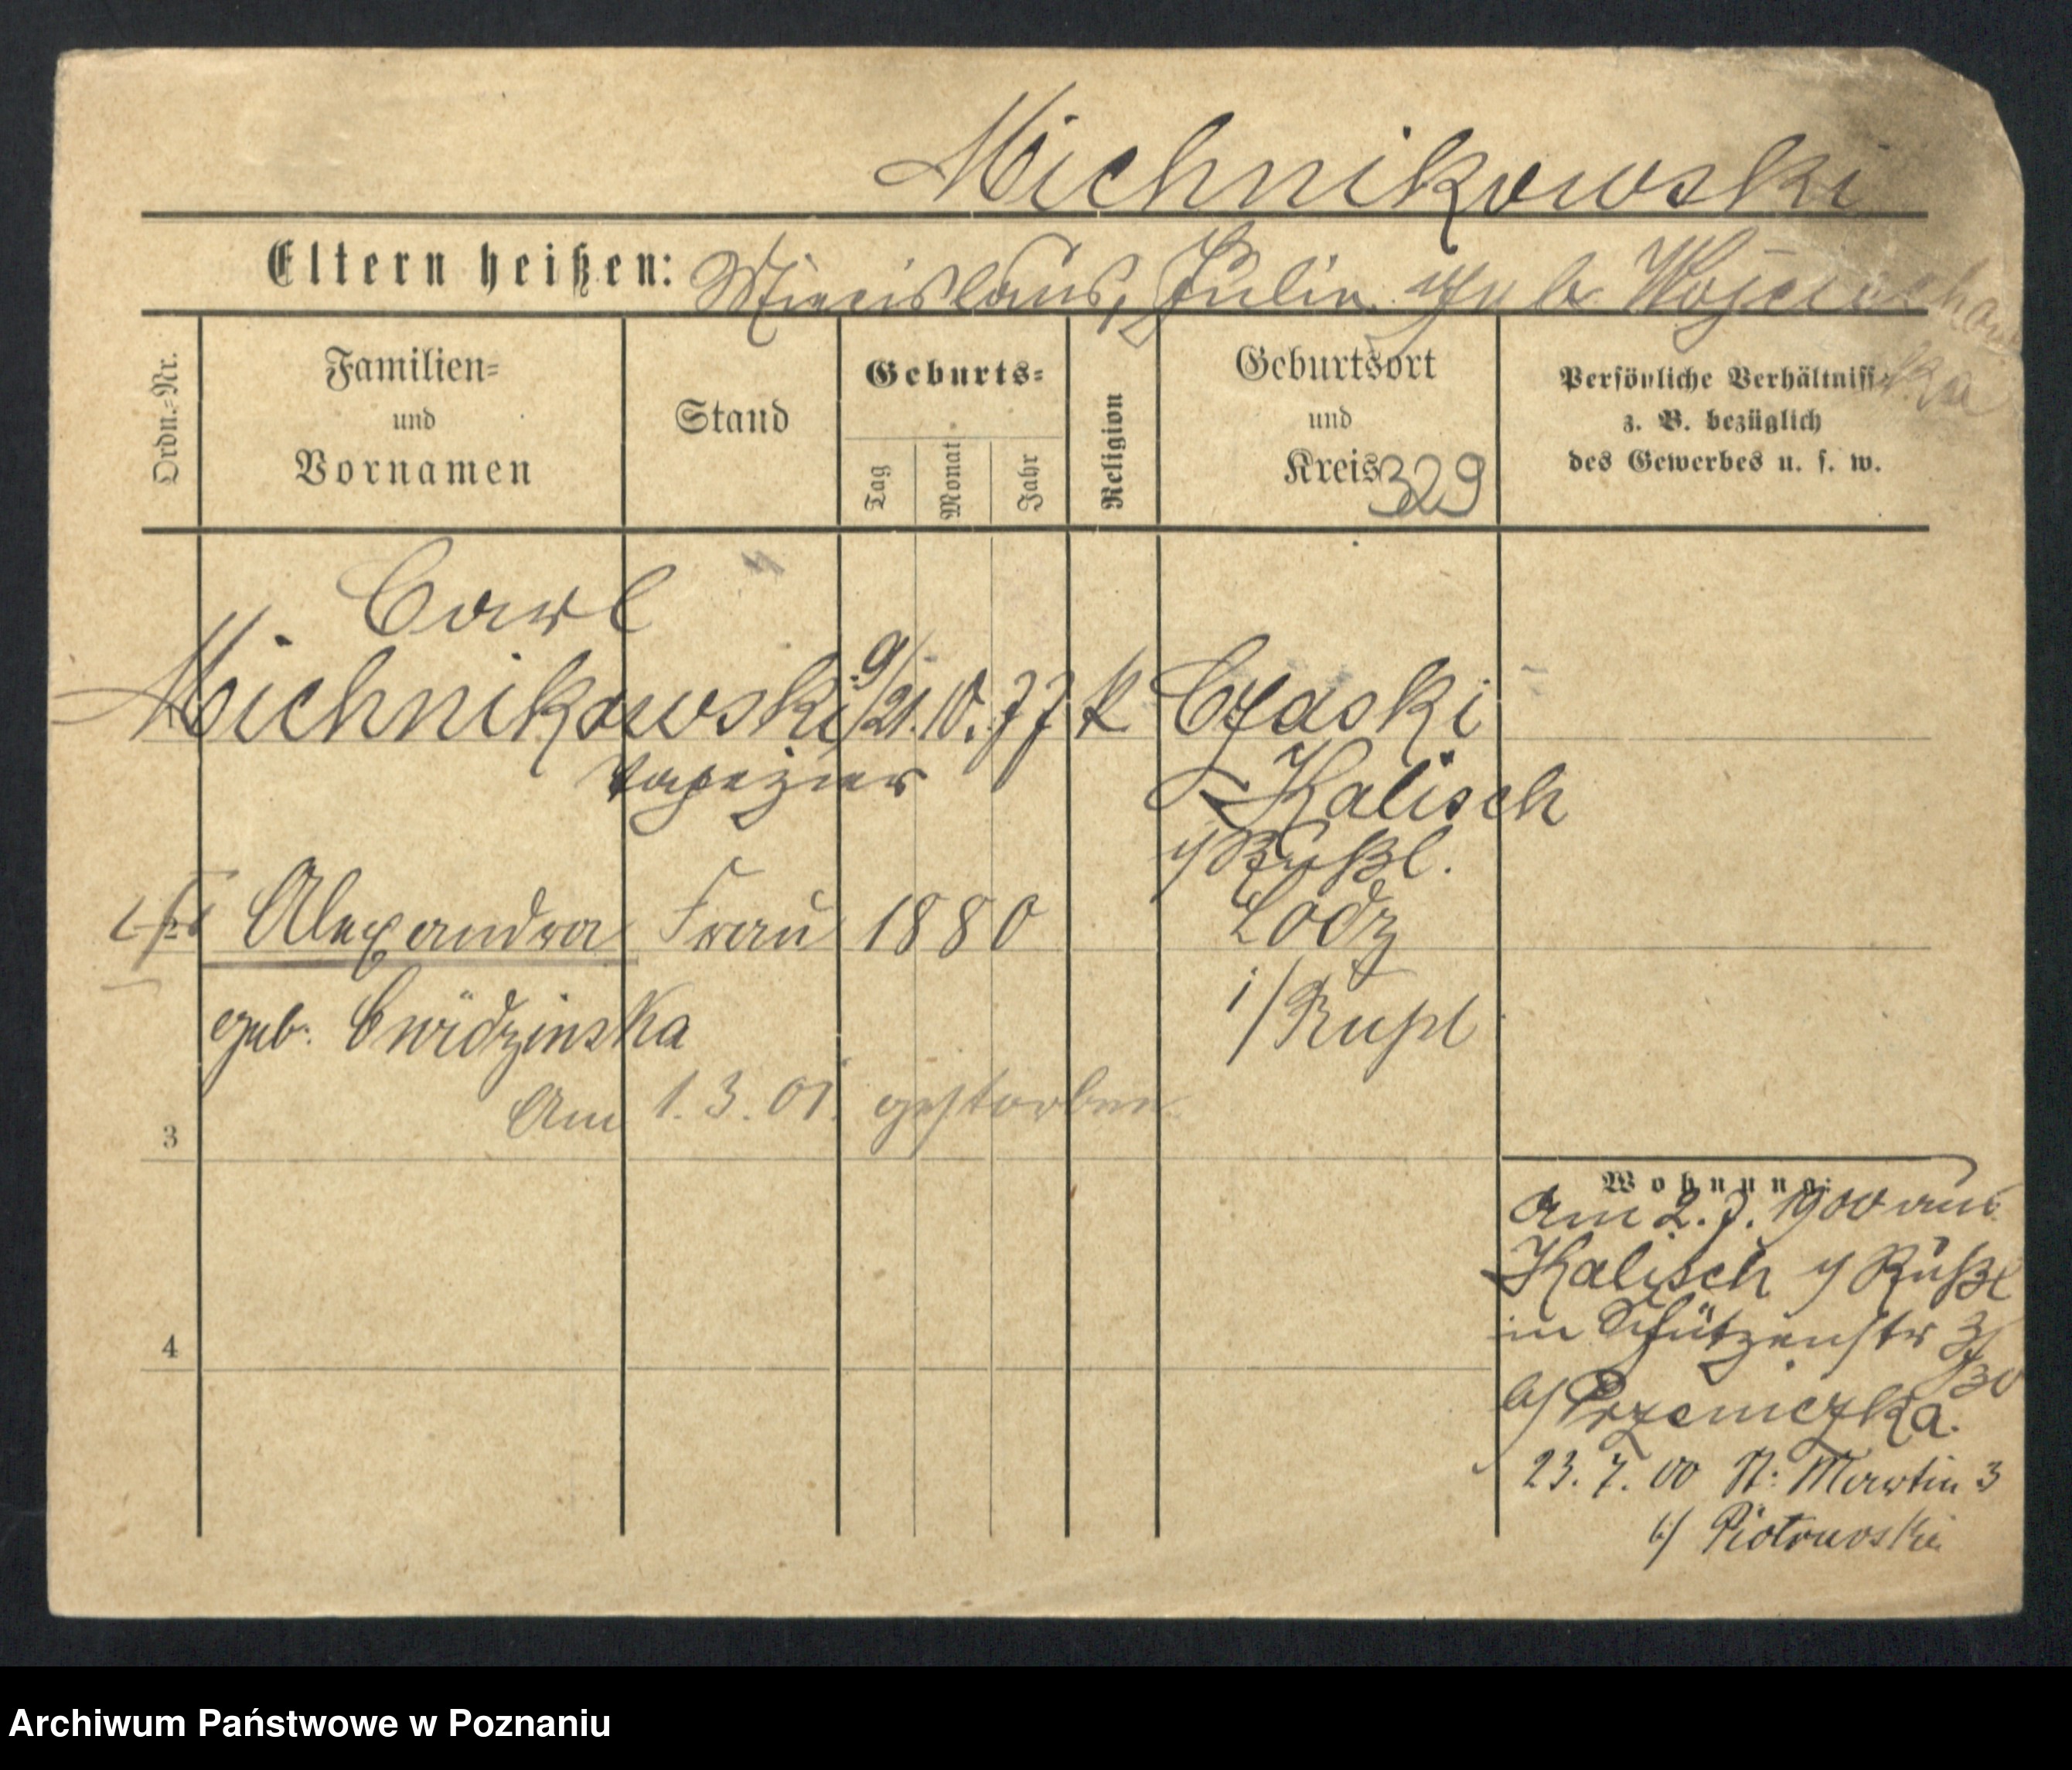 Michnikowski
Eltern heißen: Miecislaus, Julia geb Wojciechowska
Ordn.-Nr.
Familien-
und
Vornamen
Stand
Geburts-
Tag
Monat
Jahr
Religion
Geburtsort
und
Kreis 329
Persönliche Verhältnisse
z. B. bezüglich
des Gewerbes u. s. w.
Carl
Michnikowski 9/21. 10. 77 k Czaski
Tapezier
Kalisch
i/ Rußl.
Alexandra Frau 1880 Lodz
geb. Cwidzinska
i/Rußl
Am 1. 3. 01. gestorben
3
Wohnung:
Am 2. 7. 1900 aus
Kalisch i/ Rußl
in Schützenstr
4
b/
23. 7. 00 St: Martin 3
b/ Piotrowski
Archiwum Państwowe w Poznaniu